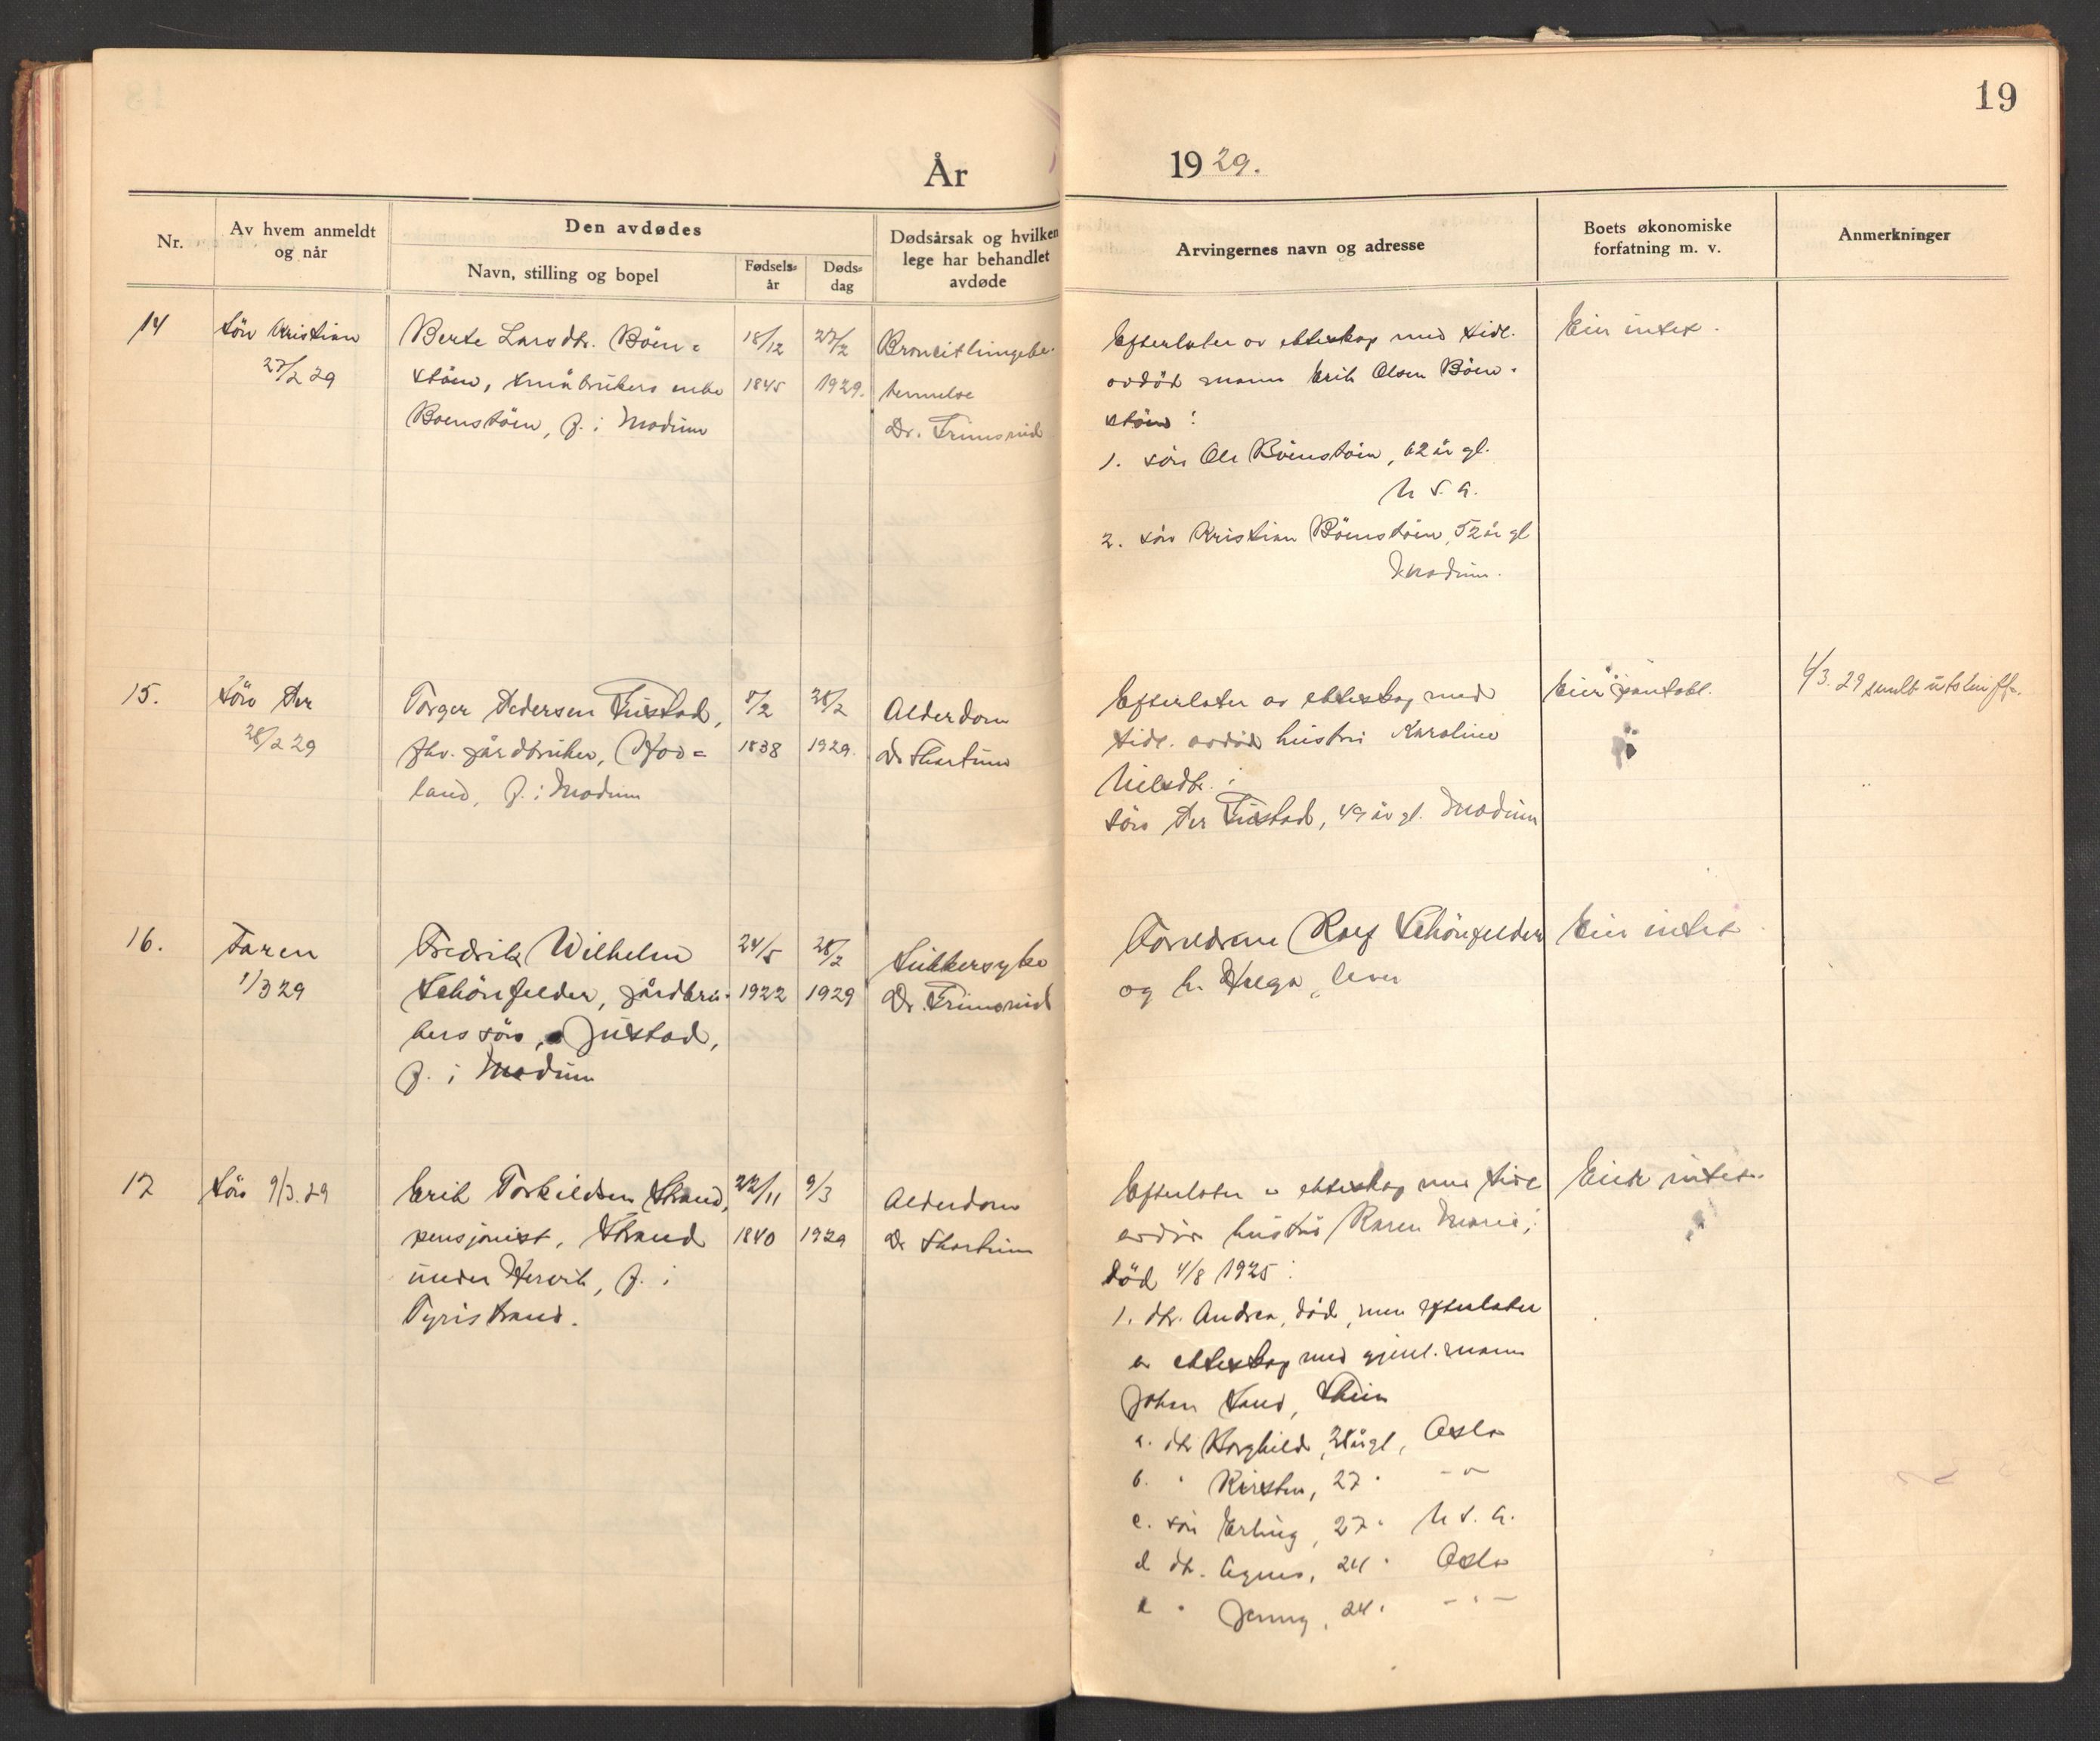 19
År 1929.
Nr.
Av hvem anmeldt
og når
Den avdødes
Navn, stilling og bopel
Fødsels-
år
Døds-
dag
Dødsårsak og hvilken
lege har behandlet
avdøde
Arvingernes navn og adresse
Boets økonomiske
forfatning m. v.
Anmerkninger
14
Sön Kristian
27/2 29
Berte Larsdtr. Böen-
stöen, småbrukers enke
Boenstöen, f. i Modum
18/12
1845
27/2
1929.
Broncit lungebe-
tennelse
Dr.
Efterlater av ekteskap med tidl.
avdöd mann Erik Olsen Böen-
stöen:
1. sön Ole Böenstöen, 62 år gl.
U. S. A.
2. sön Kristian Böenstöen, 52 år gl
Modum.
Eier intet.
15.
Sön Per
28/2 29
Torger Pedersen Fustad,
fhv. gårdbruker, Hov-
land, f. i Modum
8/2
1838
28/2
1929.
Alderdom
Dr
Efterlater av ekteskap med
tidl. avdöd hustru Karoline
Nilsdtr.:
sön Per Fustad, 49 år gl. Modum
Eier
4/3. 29 sendt utskr.
16.
Faren
1/3 29
Fredrik Wilhelm
Schönfelder, gårdbru-
kers sön, Justad,
f. i Modum
24/5
1922
28/2
1929
Sukkersyke
Dr.
Foreldrene Rolf Schönfelder
og h. Helga, lever
Eier intet
17
Sön 9/3. 29
Erik Torkildsen Strand,
pensjonist, Strand
under Hervik, f. i
Tyristrand.
22/11
1840
9/3
1929
Alderdom
Dr
Efterlater av ekteskap med tidl
avdöd hustru Karen Marie,
död 4/8 1925:
1. dtr. Andrea, död, men efterlater
av ekteskap med gjenl. mann
Johan Sand, Skien
a. dtr Borghild, år gl, Oslo
b. " Kirsten, 27 " - " -
c. sön Erling, 27 " U. S. A.
d dtr. Agnes, 24 " Oslo
e " Jenny, 24 " - " -
Eier intet.